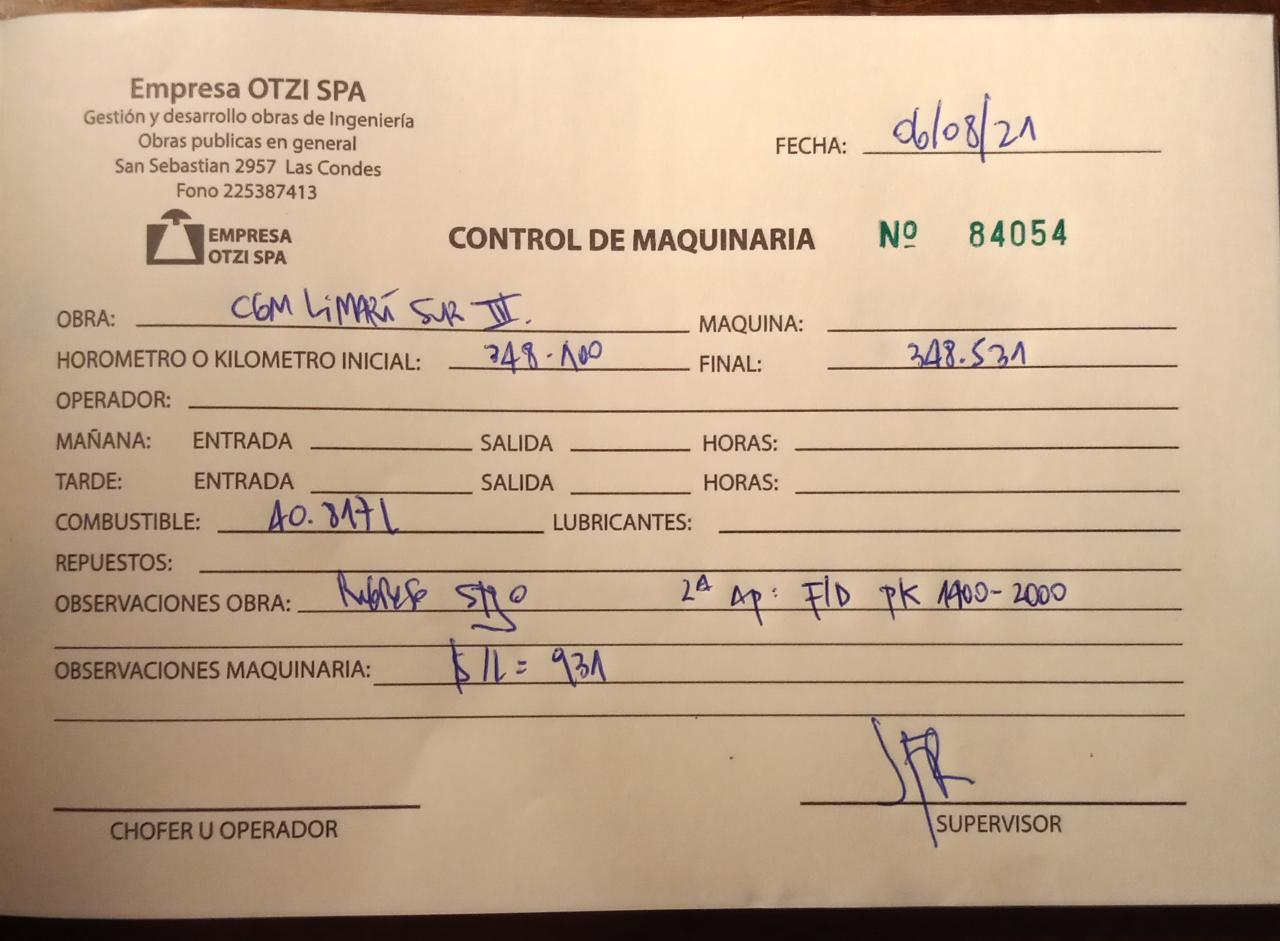 Empresa OTZI SPA
Gestión y desarrollo obras de Ingeniería
Obras publicas en general
San Sebastian 2957 Las Condes
Fono 225387413
FECHA: 06/08/21
EMPRESA
OTZI SPA
CONTROL DE MAQUINARIA Nº 84054
OBRA: CGM LiMARÍ SUR III. MAQUINA:
HOROMETRO O KILOMETRO INICIAL: 348.100 FINAL: 348.531
OPERADOR:
MAÑANA: ENTRADA SALIDA HORAS:
TARDE: ENTRADA SALIDA HORAS:
COMBUSTIBLE: 40.817L LUBRICANTES:
REPUESTOS:
OBSERVACIONES OBRA: Stgo 2A Ap: F/D PK 1400-2000
OBSERVACIONES MAQUINARIA: $/L = 931
CHOFER U OPERADOR
SUPERVISOR